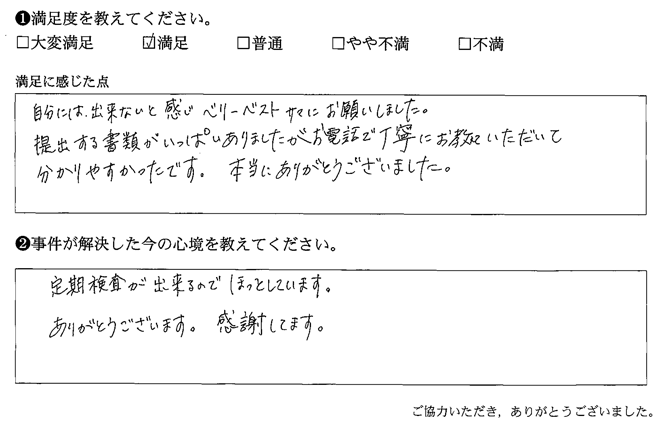 ❶満足度を教えてください。
□大変満足 ☑満足 □普通 □やや不満 □不満
満足に感じた点
自分には、出来ないと感じ ベリーベストサマにお願いしました。
提出する書類がいっぱいありましたがお電話で丁寧にお教えいただいて
分かりやすかったです。 本当にありがとうございました。
❷事件が解決した今の心境を教えてください。
定期検査が出来るのでほっとしています。
ありがとうございます。 感謝してます。
ご協力いただき，ありがとうございました。